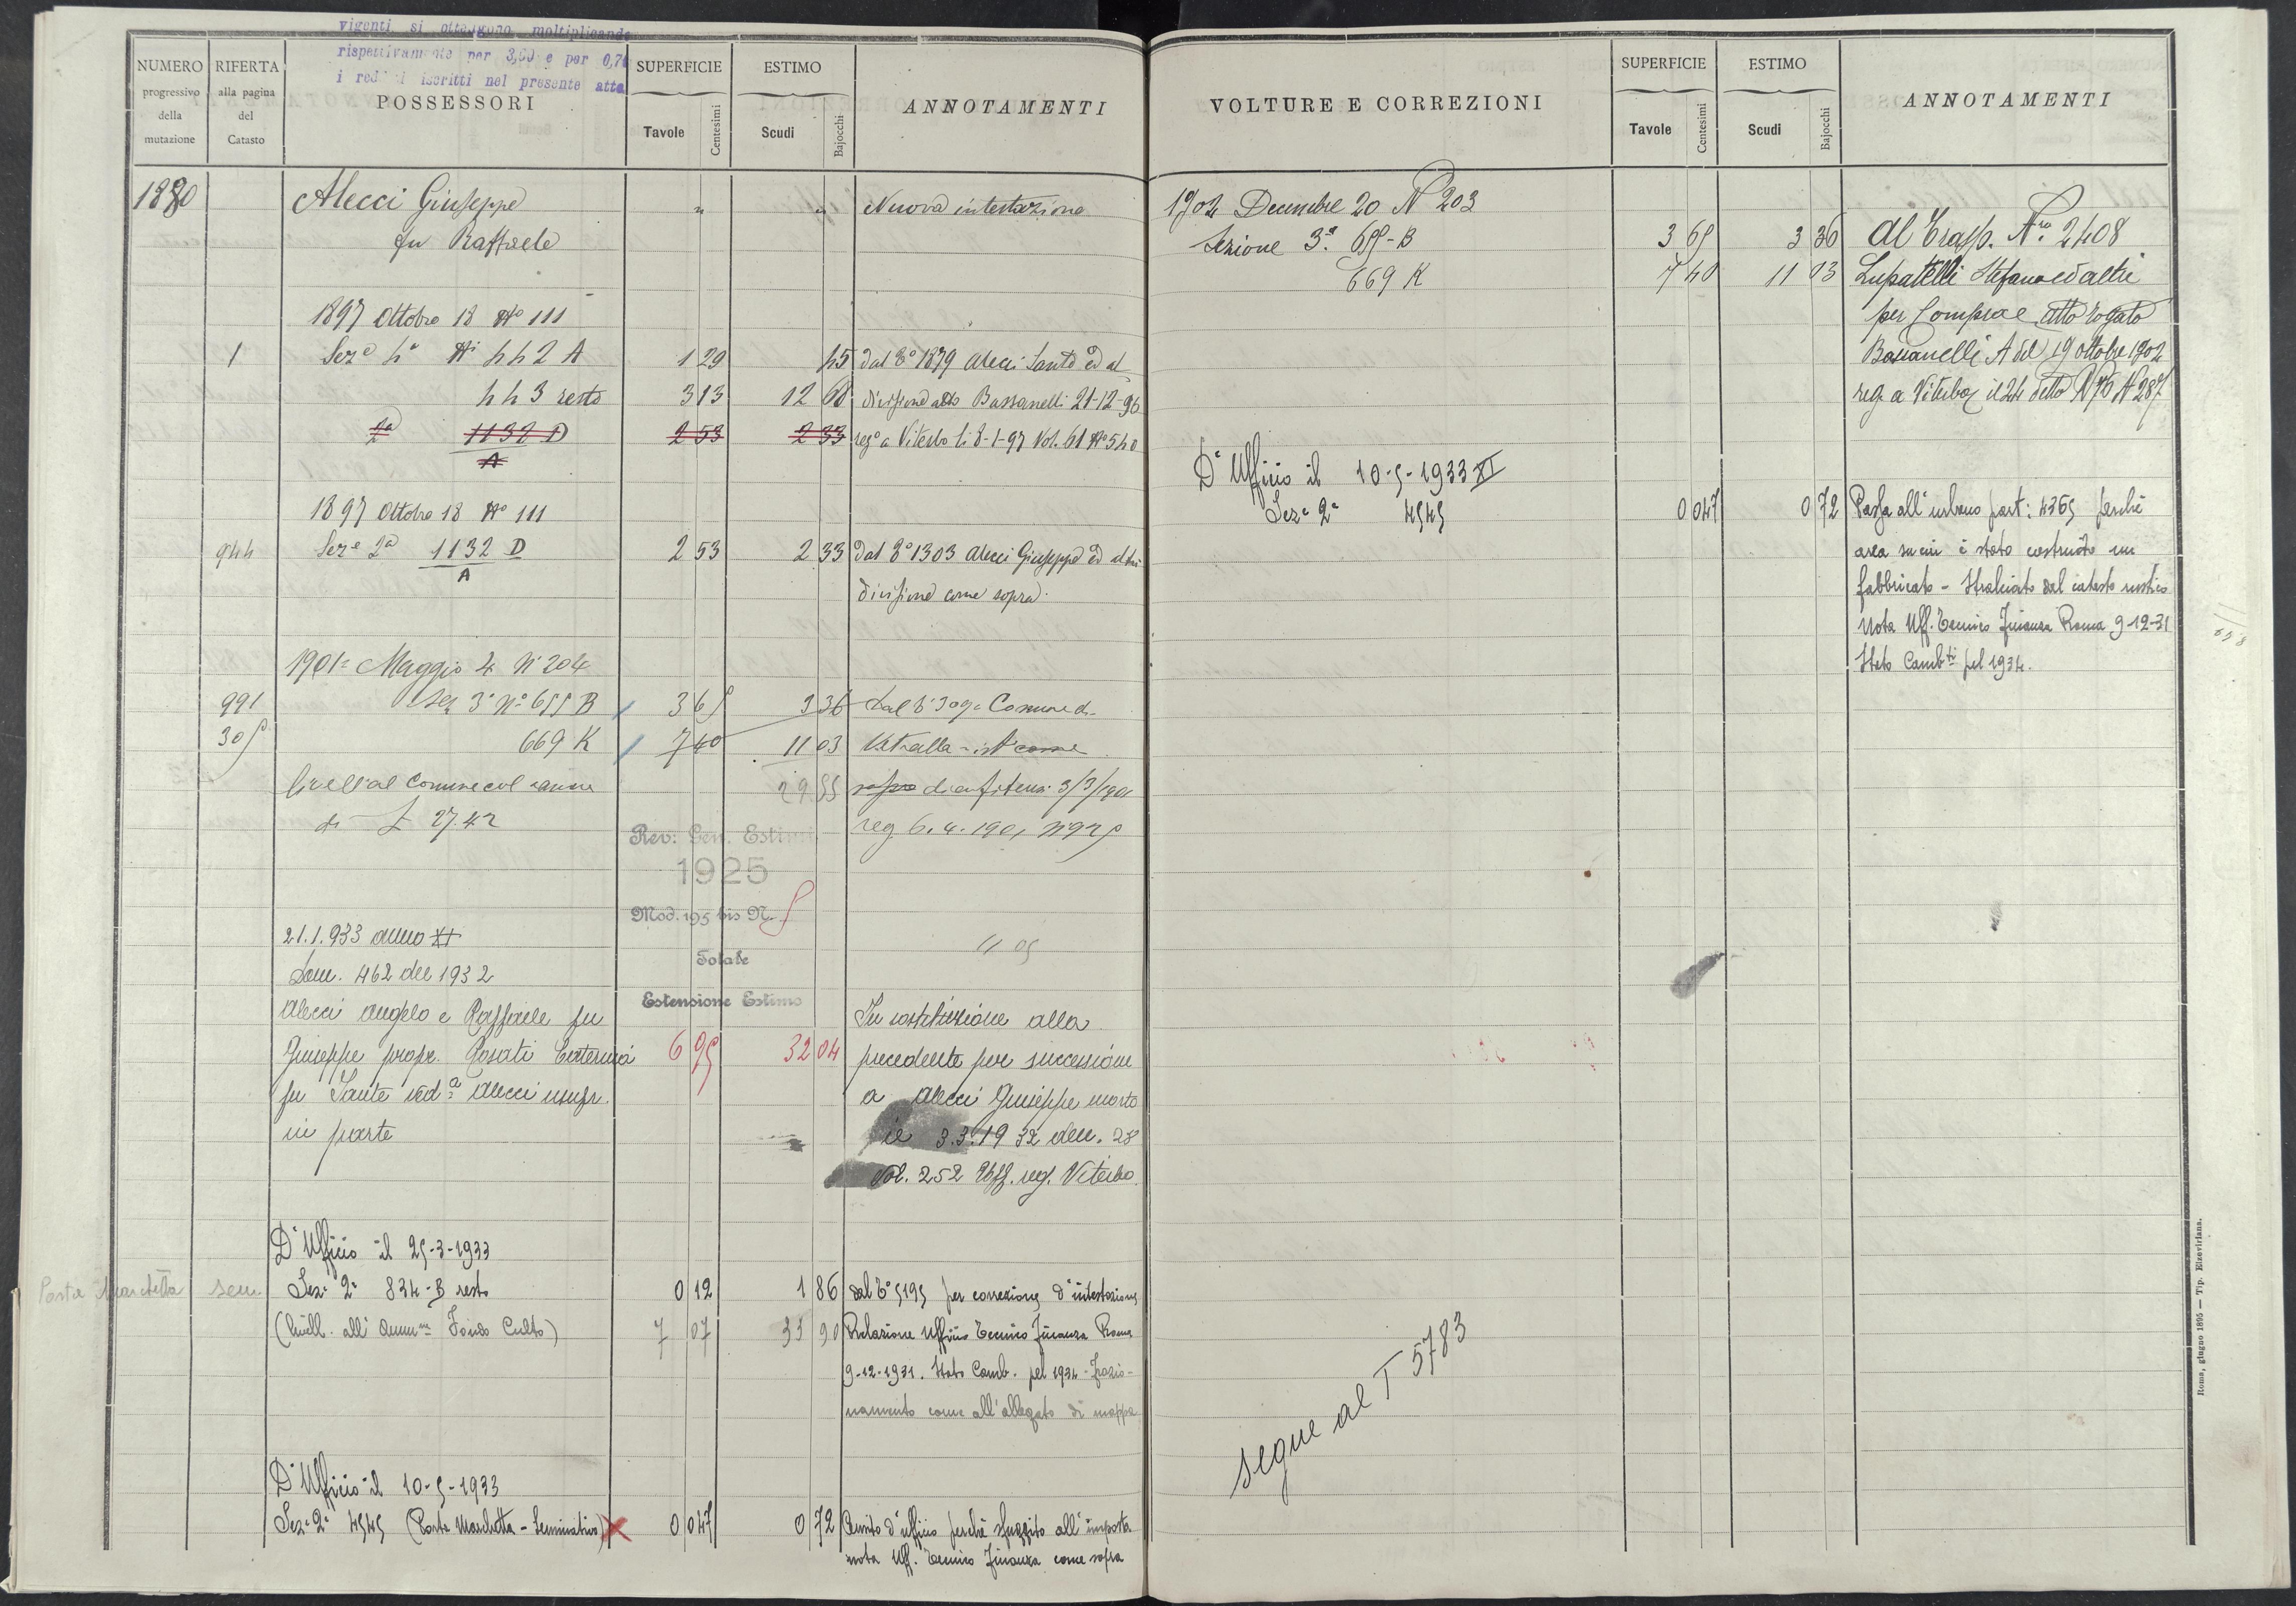 vigenti si ottengono moltiplicando
rispettivamente per 3,60 e per 0,70
i redditi iscritti nel presente atto
NUMERO
progressivo
della
mutazione
RIFERTA
alla pagina
del
Catasto
POSSESSORI
SUPERFICIE
Tavole
Centesimi
ESTIMO
Scudi
Bajocchi
ANNOTAMENTI
1880 Alecci Giuseppe " " Nuova intestazione
fu Raffaele
1897 Ottobre 18 No 111
1 Seze 4a Ni 442 A 1 29 45 dal To 1879 Alecci Santo ed al
443 resto 3 13 12 60 divisione atto Bassanelli 21-12-96
2a 1132 D 2 53 2 33 rego a Viterbo li 8-1-97 Vol. 61 No 540
A
1897 Ottobre 18 No 111
944 Seze 2a 1132 D 2 53 2 33 dal To 1303 Alecci Giuseppe ed altri
A
divisione come sopra
1901 Maggio 4 No 204
991 Sez 3a No 655 B 3 65 3 36 dal To 309 Comune di
305 669 K 7 40 11 03 Vetralla - ist come
livell al Comune col canone 29 55 sopra di enfiteusi 3/3/1901
di £ 27.42 reg 6.4.1901 No 925
Rev: Gen. Estimi
1925
Mod. 195 bis N. 5
21.1.933 anno XI 11 05
Dom. 462 del 1932 Totale
Alecci Angelo e Raffaele fu Estensione Estimo In sostituzione alla
Giuseppe propr. Rosati Caterina 6 95 32 04 precedente per successione
fu Sante veda Alecci usufr. a Alecci Giuseppe morto
in parte il 3.3.1932 den. 28
Vol. 252 Uff. reg. Viterbo
D'Ufficio il 25-3-1933
Poste Marchetta sem Seze 2a 834-B resto 0 12 1 86 dal To 5195 per correzione d'intestazione
(livell. all'Ammne Fondo Culto) 7 07 33 90 Relazione Ufficio Tecnico Finanza Roma
9-12-1931. Stato Camb. pel 1934 - Frazio-
namento come all'allegato di mappa
D'Ufficio il 10-5-1933
Seze 2a 4545 (Poste Marchetta - Seminativo) X 0 047 0 72 Censito d'ufficio perchè sfuggito all'imposta
nota Uff. Tecnico Finanza come sopra
VOLTURE E CORREZIONI
SUPERFICIE
Tavole
Centesimi
ESTIMO
Scudi
Bajocchi
ANNOTAMENTI
1902 Decembre 20 N 203
Sezione 3a 655-B 3 65 3 36 Al Trasp. No 2408
669 K 7 40 11 03 Lupatelli Stefano ed altri
per Compra e atto rogato
Bassanelli A del 19 Ottobre 1902
reg. a Viterbo il 24 detto V 76 N 287
D'Ufficio il 10-5-1933 XI
Seze 2a 4545 0 047 0 72 Passa all'urbano part: 4365 perchè
area su cui è stato costruito un
fabbricato - Stralciato dal catasto rustico
Nota Uff. Tecnico Finanza Roma 9-12-31
Stato Cambti pel 1934.
segue al T 5783
Roma, giugno 1895 — Tip. Elzeviriana.